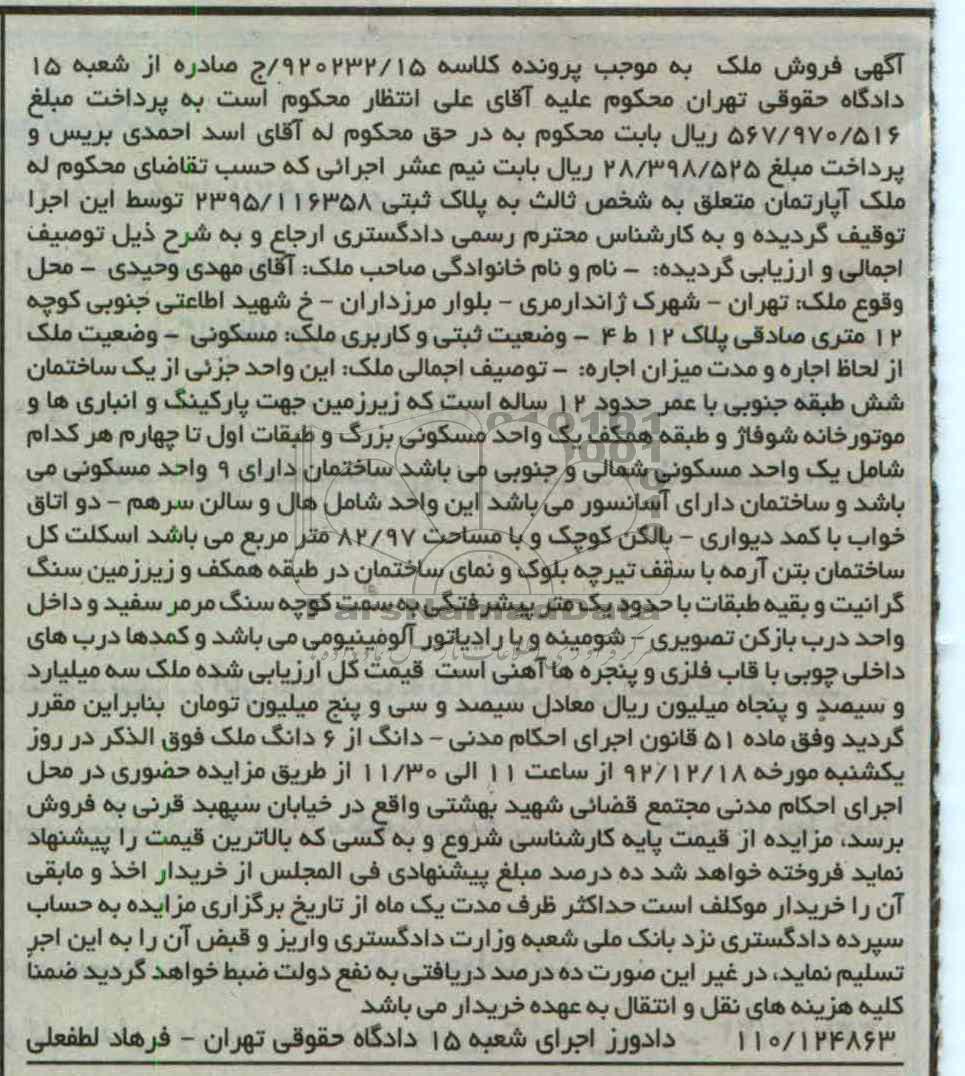 آگهی فروش ملک به موجب پرونده کلاسه ۹۲۰۲۳۲/۱۵/ج صادره از شعبه ۱۵
دادگاه حقوقی تهران محکوم علیه آقای علی انتظار محکوم است به پرداخت مبلغ
۵۶۷/۹۷۰/۵۱۶ ریال بابت محکوم به در حق محکوم له آقای اسد احمدی بریس و
پرداخت مبلغ ۲۸/۳۹۸/۵۲۵ ریال بابت نیم عشر اجرائی که حسب تقاضای محکوم له
ملک آپارتمان متعلق به شخص ثالث به پلاک ثبتی ۲۳۹۵/۱۱۶۳۵۸ توسط این اجرا
توقیف گردیده و به کارشناس محترم رسمی دادگستری ارجاع و به شرح ذیل توصیف
اجمالی و ارزیابی گردیده: - نام و نام خانوادگی صاحب ملک: آقای مهدی وحیدی - محل
وقوع ملک: تهران - شهرک ژاندارمری - بلوار مرزداران - خ شهید اطاعتی جنوبی کوچه
۱۲ متری صادقی پلاک ۱۲ ط ۴ - وضعیت ثبتی و کاربری ملک: مسکونی - وضعیت ملک
از لحاظ اجاره و مدت میزان اجاره: - توصیف اجمالی ملک: این واحد جزئی از یک ساختمان
شش طبقه جنوبی با عمر حدود ۱۲ ساله است که زیرزمین جهت پارکینگ و انباری ها و
موتورخانه شوفاژ و طبقه همکف یک واحد مسکونی بزرگ و طبقات اول تا چهارم هر کدام
شامل یک واحد مسکونی شمالی و جنوبی می باشد ساختمان دارای ۹ واحد مسکونی می
باشد و ساختمان دارای آسانسور می باشد این واحد شامل هال و سالن سرهم - دو اتاق
خواب با کمد دیواری - بالکن کوچک و با مساحت ۸۲/۹۷ متر مربع می باشد اسکلت کل
ساختمان بتن آرمه با سقف تیرچه بلوک و نمای ساختمان در طبقه همکف و زیرزمین سنگ
گرانیت و بقیه طبقات با حدود یک متر پیشرفتگی به سمت کوچه سنگ مرمر سفید و داخل
واحد درب بازکن تصویری - شومینه و با رادیاتور آلومینیومی می باشد و کمدها درب های
داخلی چوبی با قاب فلزی و پنجره ها آهنی است قیمت کل ارزیابی شده ملک سه میلیارد
و سیصد و پنجاه میلیون ریال معادل سیصد و سی و پنج میلیون تومان بنابراین مقرر
گردید وفق ماده ۵۱ قانون اجرای احکام مدنی - دانگ از ۶ دانگ ملک فوق الذکر در روز
یکشنبه مورخه ۹۲/۱۲/۱۸ از ساعت ۱۱ الی ۱۱/۳۰ از طریق مزایده حضوری در محل
اجرای احکام مدنی مجتمع قضائی شهید بهشتی واقع در خیابان سپهبد قرنی به فروش
برسد، مزایده از قیمت پایه کارشناسی شروع و به کسی که بالاترین قیمت را پیشنهاد
نماید فروخته خواهد شد ده درصد مبلغ پیشنهادی فی المجلس از خریدار اخذ و مابقی
آن را خریدار موکلف است حداکثر ظرف مدت یک ماه از تاریخ برگزاری مزایده به حساب
سپرده دادگستری نزد بانک ملی شعبه وزارت دادگستری واریز و قبض آن را به این اجر
تسلیم نماید، در غیر این صورت ده درصد دریافتی به نفع دولت ضبط خواهد گردید ضمنا
کلیه هزینه های نقل و انتقال به عهده خریدار می باشد
۱۱۰/۱۲۴۸۶۳ دادورز اجرای شعبه ۱۵ دادگاه حقوقی تهران - فرهاد لطفعلی
ParsNamadData